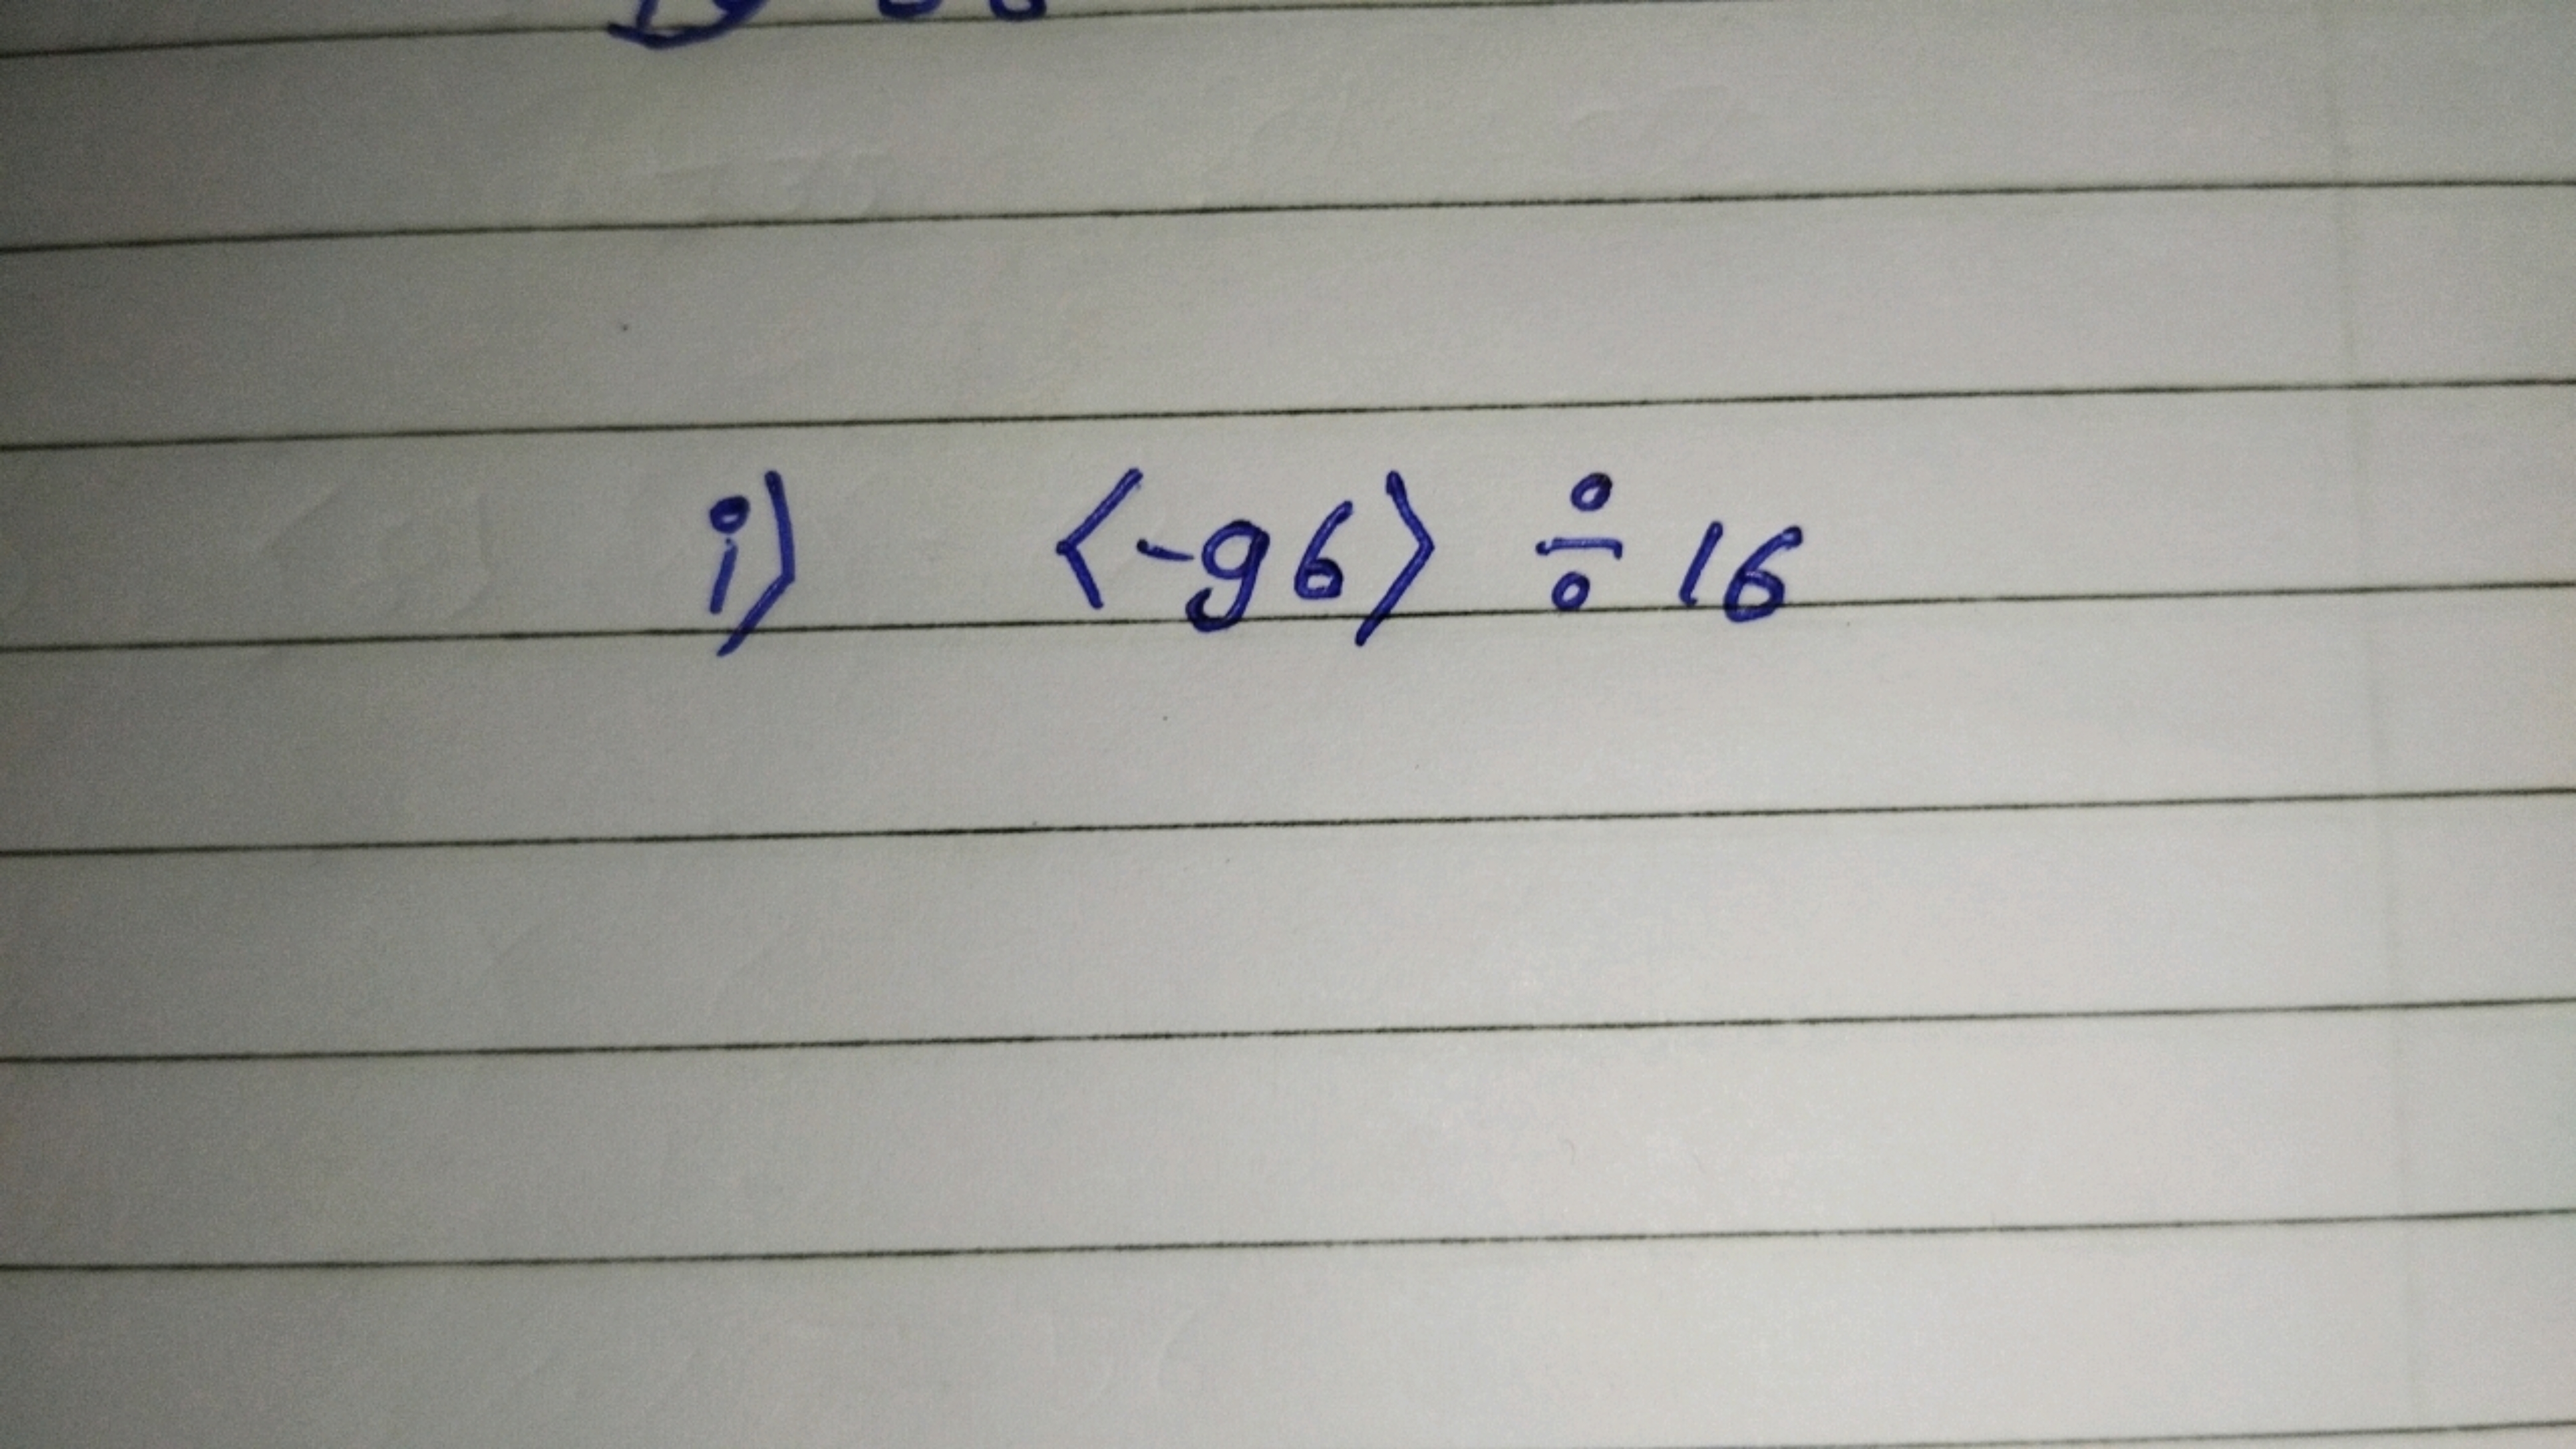 i) (-96) ÷ 16